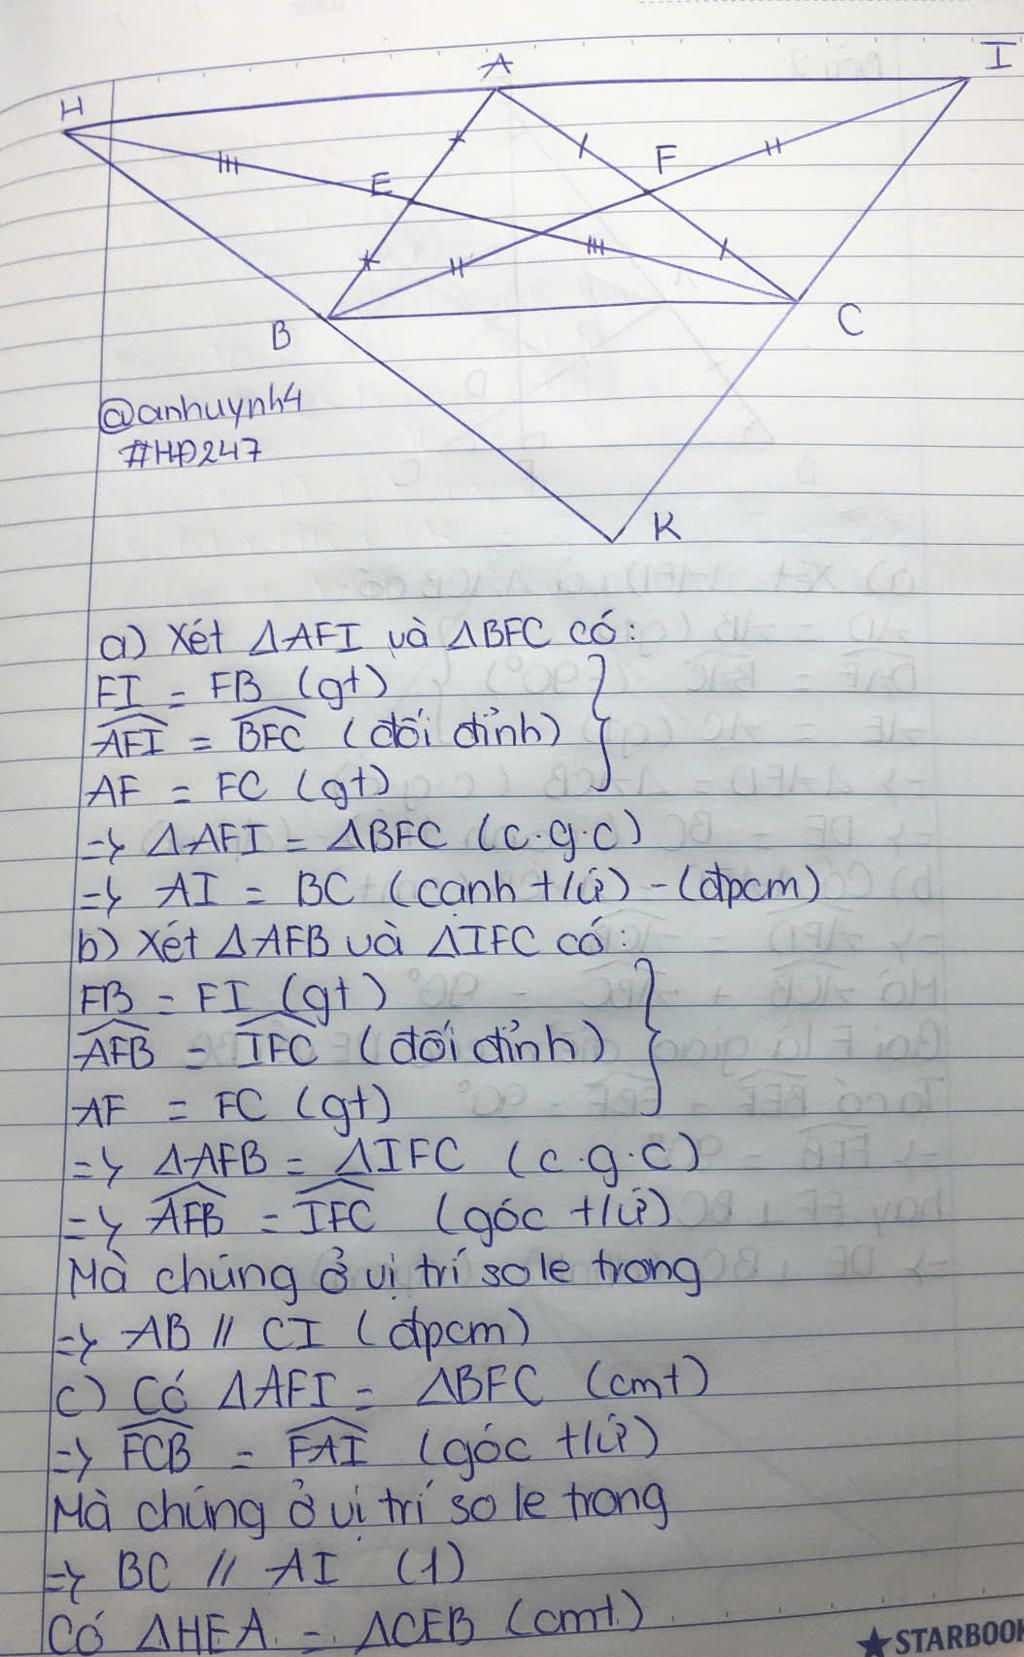 A
I
H
F
E
B
C
@anhuynh4
#HĐ247
K
a) Xét ΔAFI và ΔBFC có:
FI = FB (gt)
AFI = BFC (đối đỉnh)
AF = FC (gt)
=> ΔAFI = ΔBFC (c.g.c)
=> AI = BC (cạnh t/ứ) - (đpcm)
b) Xét ΔAFB và ΔIFC có:
FB = FI (gt)
AFB = IFC (đối đỉnh)
AF = FC (gt)
=> ΔAFB = ΔIFC (c.g.c)
=> AFB = IFC (góc t/ứ)
Mà chúng ở vị trí so le trong
=> AB // CI (đpcm)
c) Có ΔAFI = ΔBFC (cmt)
=> FCB = FAI (góc t/ứ)
Mà chúng ở vị trí so le trong
=> BC // AI (1)
Có ΔHEA = ΔCEB (cmt)
★STARBOOK